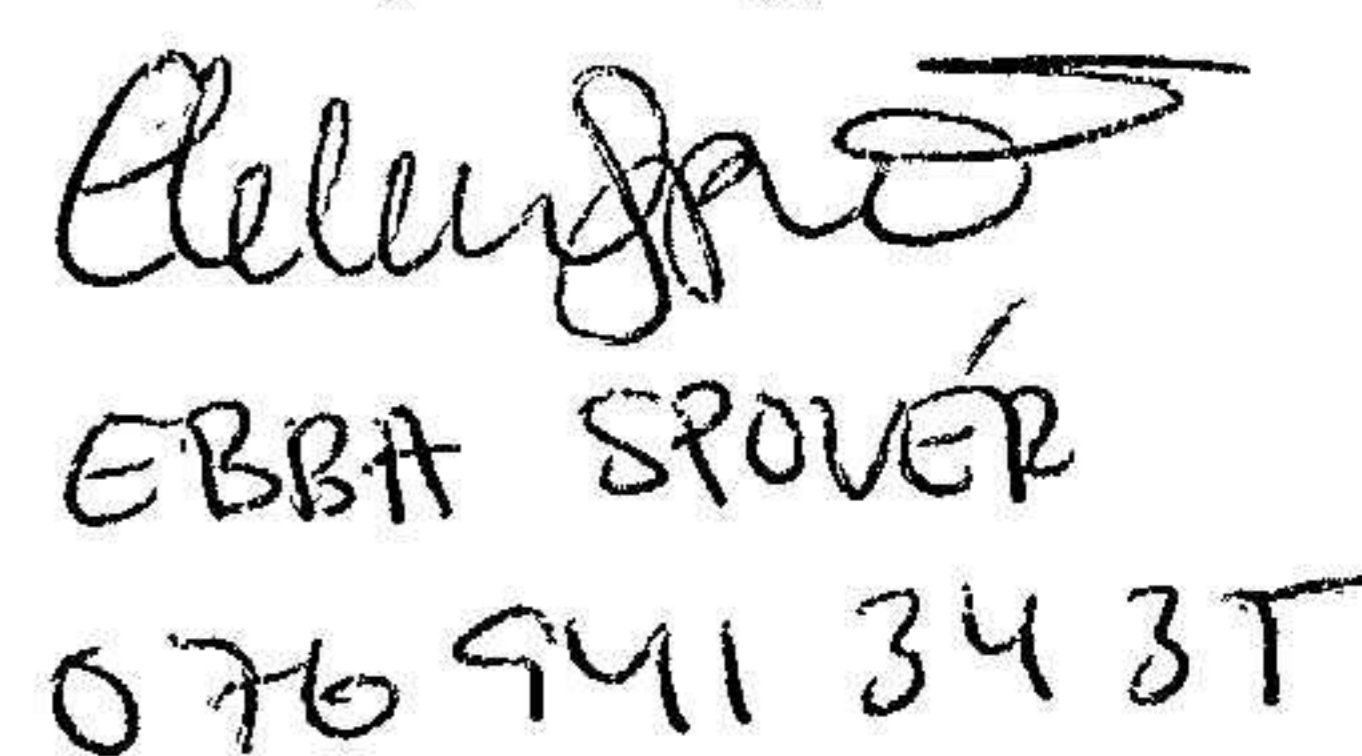 EBBA SPOVÉR
076 941 34 37